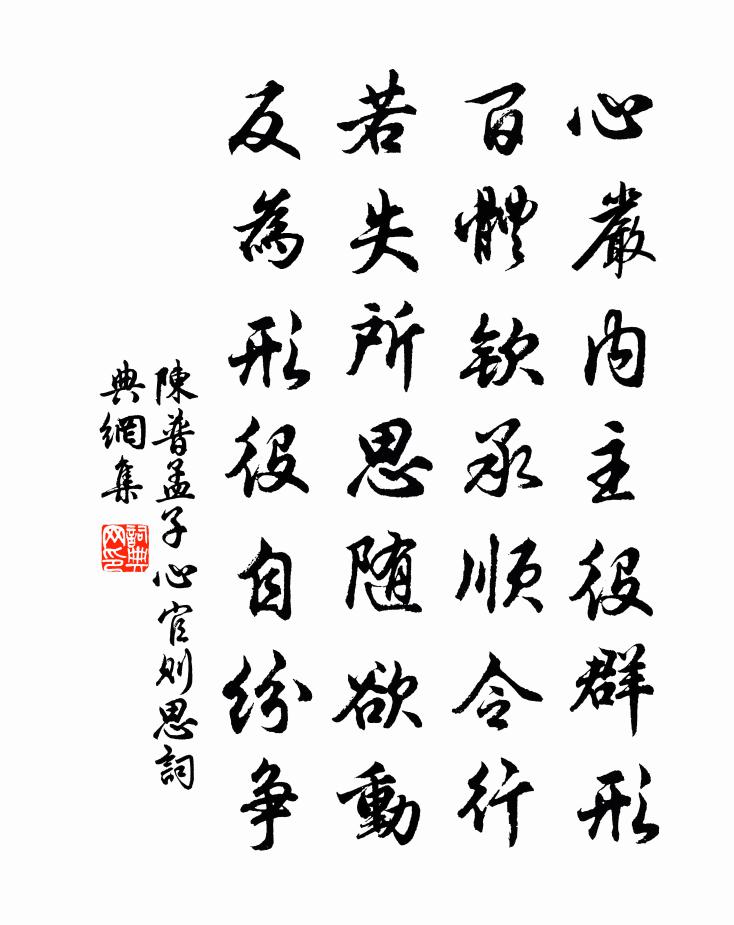 心嚴内主役群形
百體欽承順令行
若失所思随欲動
反為形役自紛争
陳普孟子心官則思詞
典網集
詞典
网印